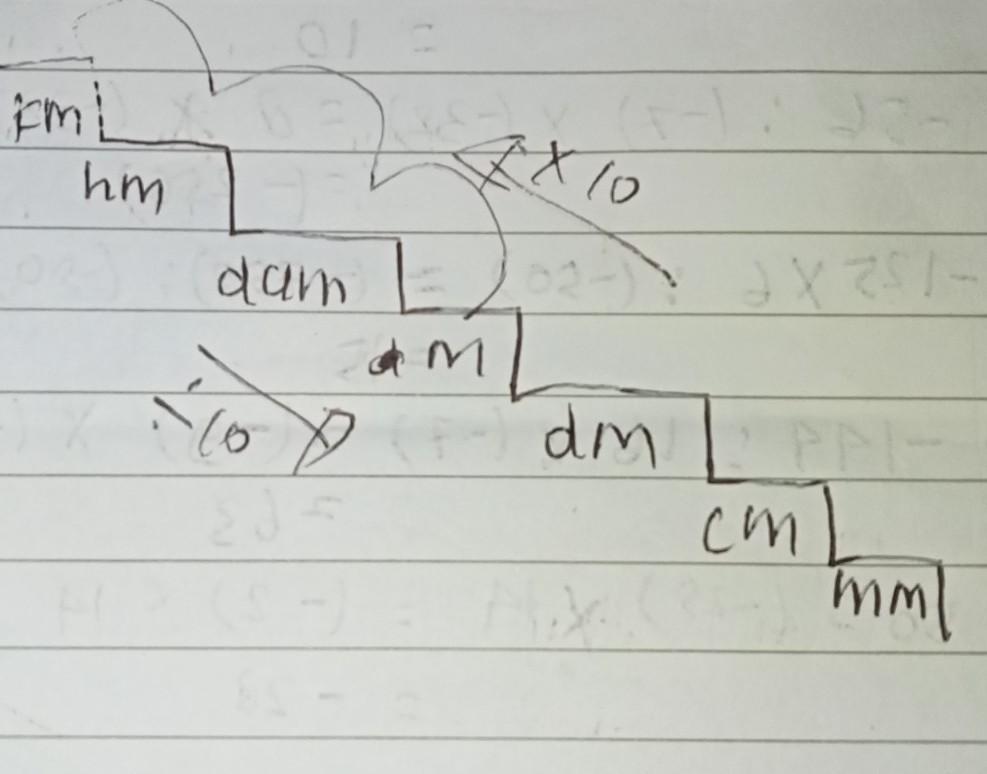 km
hm
x 10
dam
m
: 10
dm
cm
mm